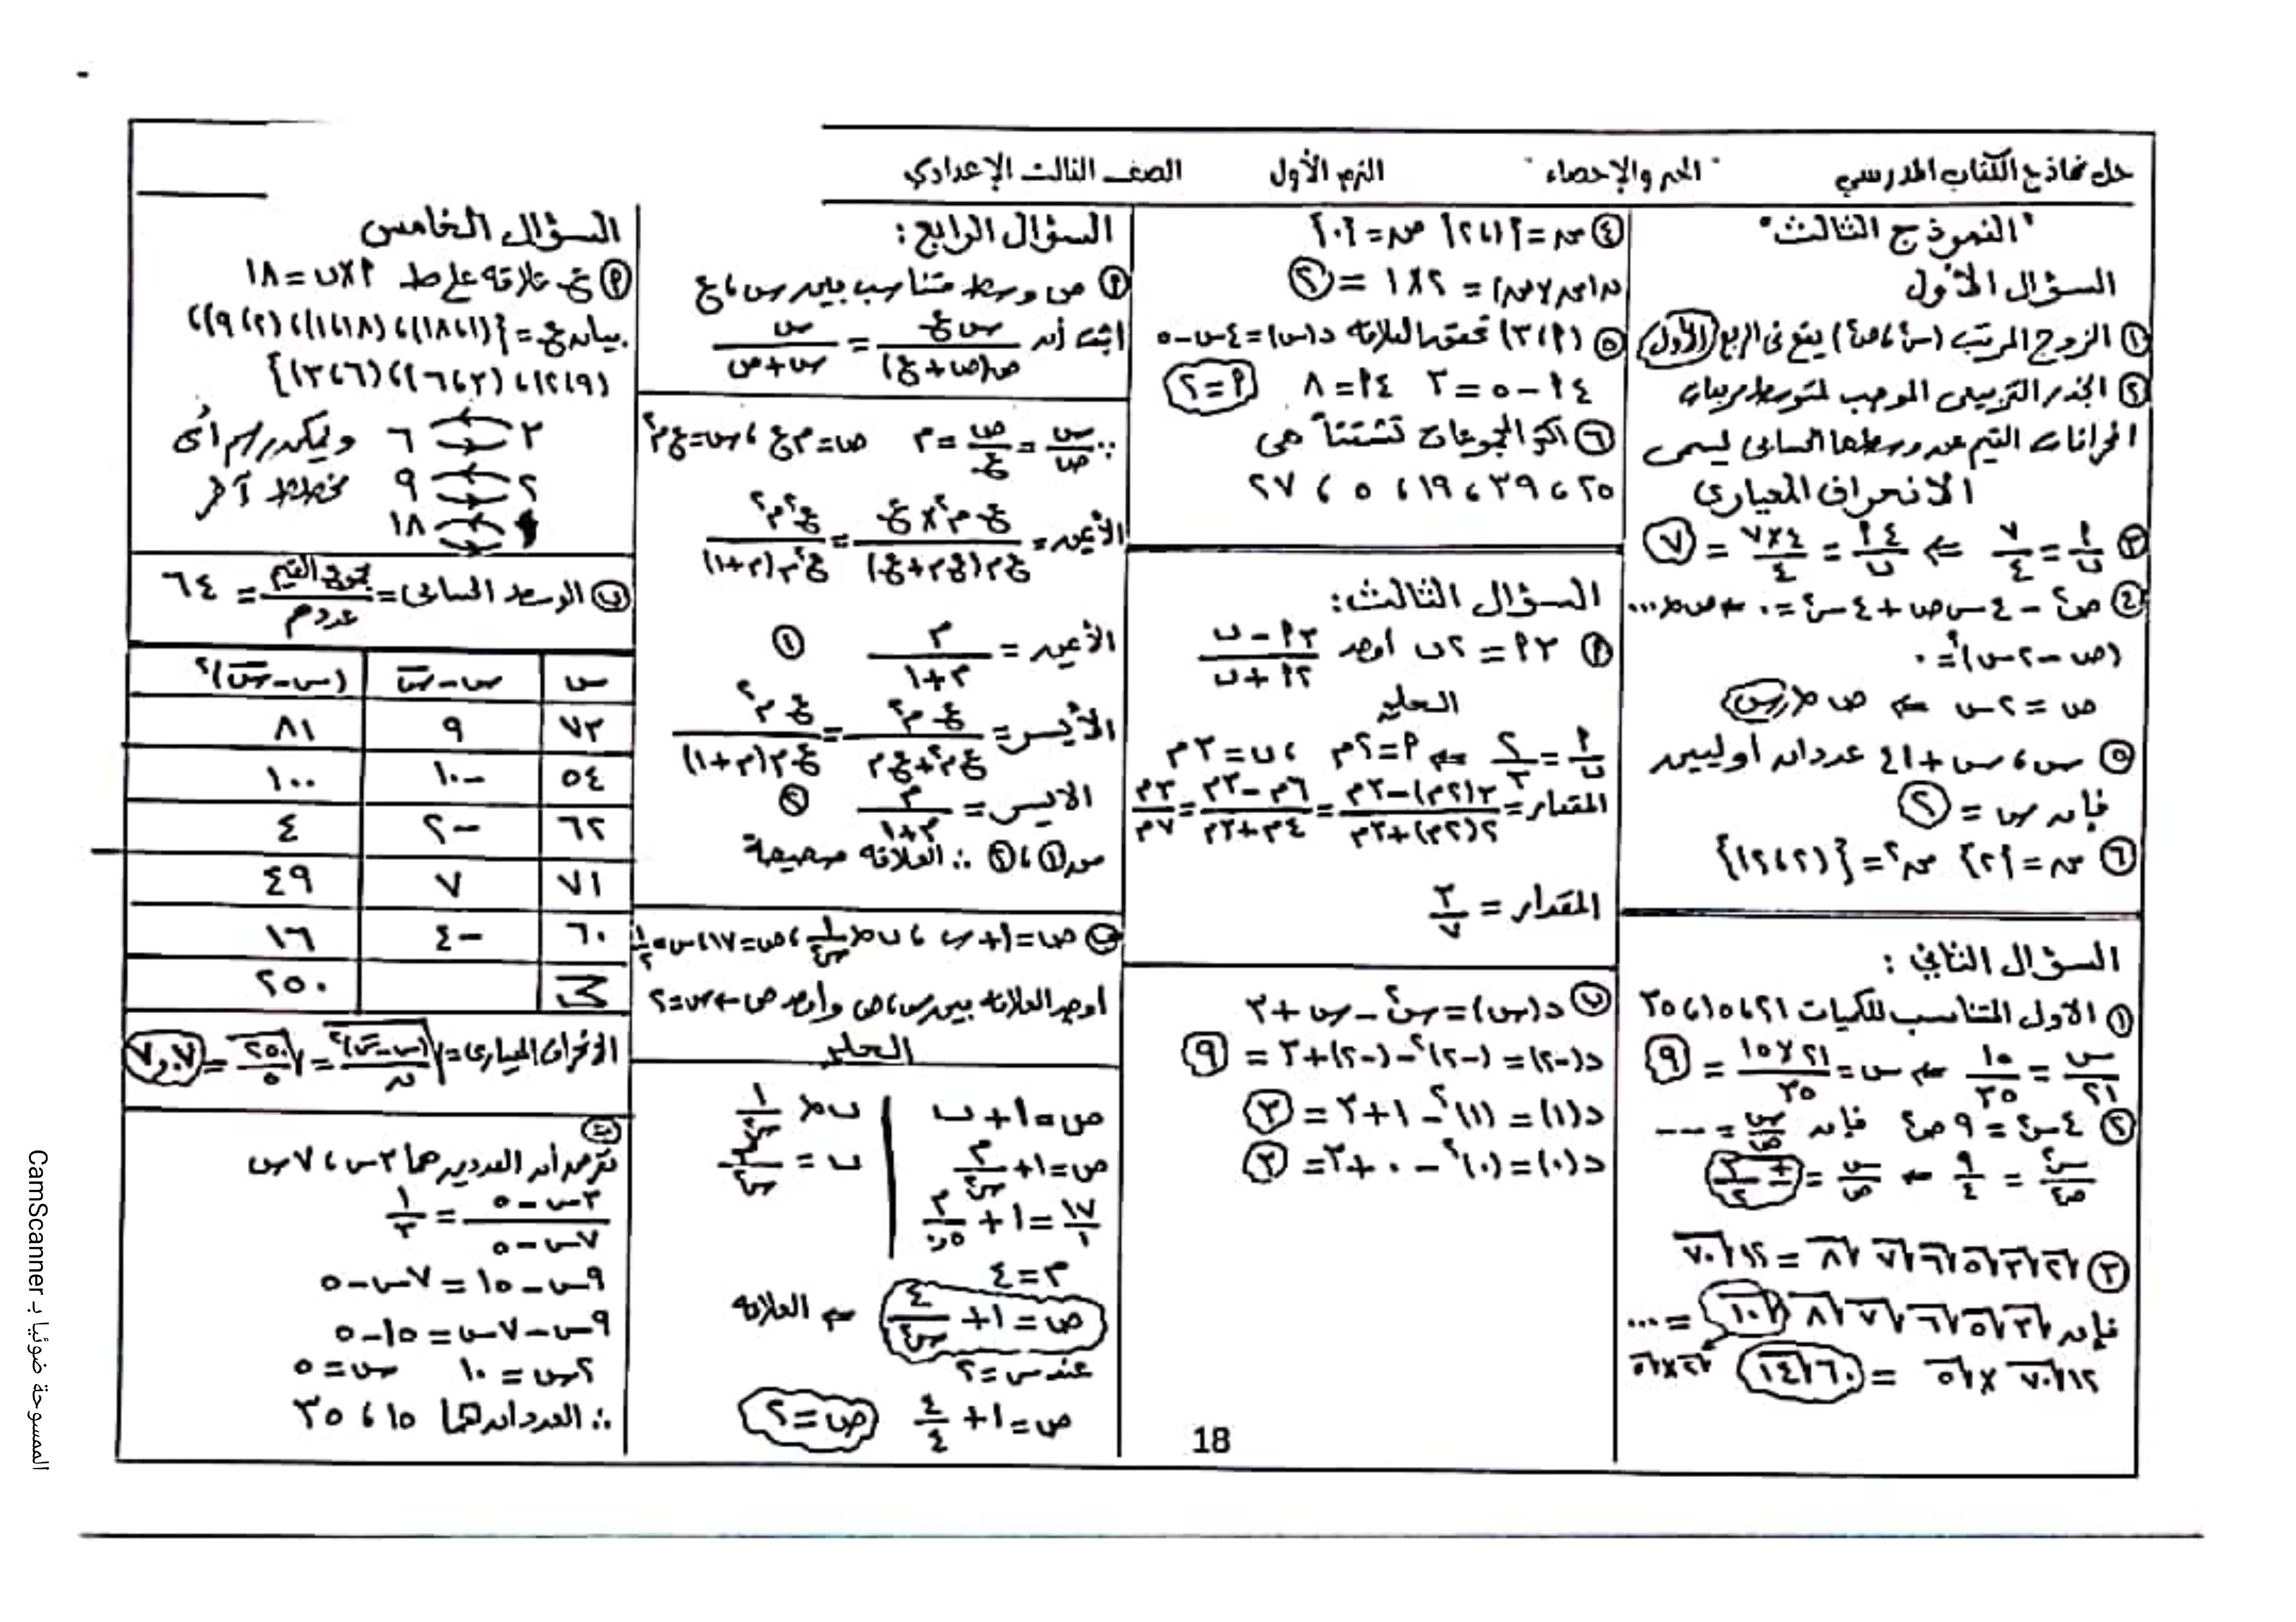 حل نماذج الكتاب المدرسي "الجبر والإحصاء" الترم الأول الصف الثالث الإعدادي
"النموذج الثالث"
السؤال الأول
① الزوج المرتب (س٢، ص٢) يقع فى الربع (الأول)
② الجذر التربيعى الموجب لمتوسط مربعات
انحرافات القيم عن وسطها الحسابى ليسمى
الانحراف المعيارى
③ أ/ب = ٧/٤ ⇐ ٤أ/ب = ٤×٧/٤ = ٧
④ ص٢ - ٤ س ص + ٤ س٢ = ٠ ← ص ∝ ...
(ص - ٢س)٢ = ٠
ص = ٢ س ⇐ ص ∝ س
⑤ س ، س + ٤١ عددان أوليين
فإن س = ٢
⑥ سہ = {٢} سہ٢ = {(٢،٢)}
السؤال الثاني :
① الاول المتناسب للكميات ٢١ ، ١٥ ، ٣٥
س/٢١ = ١٥/٣٥ ⇐ س = ٢١×١٥/٣٥ = ٩
② ٤ س٢ = ٩ ص٢ فإن س/ص = ---
س٢/ص٢ = ٩/٤ ← س/ص = ± ٣/٢
③ √٢ √٣ √٥ √٦ √٧ √٨ = ١٢√٧٠
فإن √٣ √٥ √٦ √٧ √٨ √١٠ = ...
١٢√٧٠ × √٥ = ٦٠√١٤ √٢×√٥
④ سہ = {٢،١} صہ = {٠}
ن(سہ×صہ) = ٢×١ = ٢
⑤ (أ،٣) تحقق العلاقة د(س) = ٤س - ٥
٤أ - ٥ = ٣ ٤أ = ٨ أ = ٢
⑥ اكثر المجموعات تشتتاً هى
٢٥ ، ٣٩ ، ١٩ ، ٥ ، ٢٧
السؤال الثالث:
أ ٣أ = ٢ب أوجد ٣أ - ب / ٢أ + ب
الحل
أ/ب = ٢/٣ ⇐ أ = ٢م ، ب = ٣م
المقدار = ٣(٢م) - ٣م / ٢(٢م) + ٣م = ٦م - ٣م / ٤م + ٣م = ٣م/٧م
المقدار = ٣/٧
ب د(س) = س٢ - س + ٣
د(-٢) = (-٢)٢ - (-٢) + ٣ = ٩
د(١) = (١)٢ - ١ + ٣ = ٣
د(٠) = (٠)٢ - ٠ + ٣ = ٣
18
السؤال الرابع :
أ ص وسط متناسب بين س ، ع
اثبت أن س ع / ص(ص + ع) = س / س + ص
∵ س/ص = ص/ع = م ص = م ع ، س = ع م٢
الأيمن = ع م٢ × ع / ع م(ع م + ع) = ع٢ م٢ / ع٢ م(م + ١)
الأيمن = م / م + ١ ①
الأيسر = ع م٢ / ع م٢ + ع م = ع م٢ / ع م(م + ١)
الايسر = م / م + ١ ②
من ① ، ② ∴ العلاقة صحيحة
ب ص = ١ + ب ، ب ∝ ١/س٢ ، ص = ١٧ ، س = ١/٢
أوجد العلاقة بين س ، ص وأوجد ص ← س = ٢
الحل
ص = ١ + ب ب ∝ ١/س٢
ص = ١ + م/س٢ ب = م/س٢
١٧/١ = ١ + م/٠,٢٥
م = ٤
ص = ١ + ٤/س٢ ⇐ العلاقة
عند س = ٢
ص = ١ + ٤/٤ ص = ٢
السؤال الخامس
أ ع علاقة على ط أ×ب = ١٨
بيان ع = {(١،١٨)، (١٨،١)، (٢،٩)،
(٩،٢)، (٣،٦)، (٦،٣)}
٣ ٦ ويمكن رسم أى
٢ ٩ مخطط آخر
١ ١٨
ب الوسط الحسابى = مجموع القيم / عددهم = ٦٤
س س - س̄ (س - س̄)٢
٧٣ ٩ ٨١
٥٤ -١٠ ١٠٠
٦٢ -٢ ٤
٧١ ٧ ٤٩
٦٠ -٤ ١٦
Σ ٢٥٠
الانحراف المعيارى = √(س - س̄)٢/ن = √٢٥٠/٥ = ٧,٠٧
نفرض أن العددين هما ٣س ، ٧س
٣س - ٥ / ٧س - ٥ = ١/٣
٩س - ١٥ = ٧س - ٥
٩س - ٧س = ١٥ - ٥
٢س = ١٠ س = ٥
∴ العددان هما ١٥ ، ٣٥
الممسوحة ضوئيا بـ CamScanner